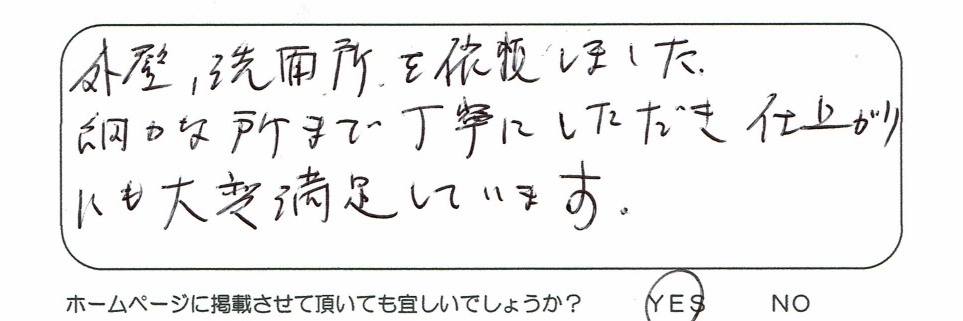 外壁、洗面所を依頼しました。
細かな所まで丁寧にしただき仕上がり
にも大変満足しています。
ホームページに掲載させて頂いても宜しいでしょうか？ YES NO